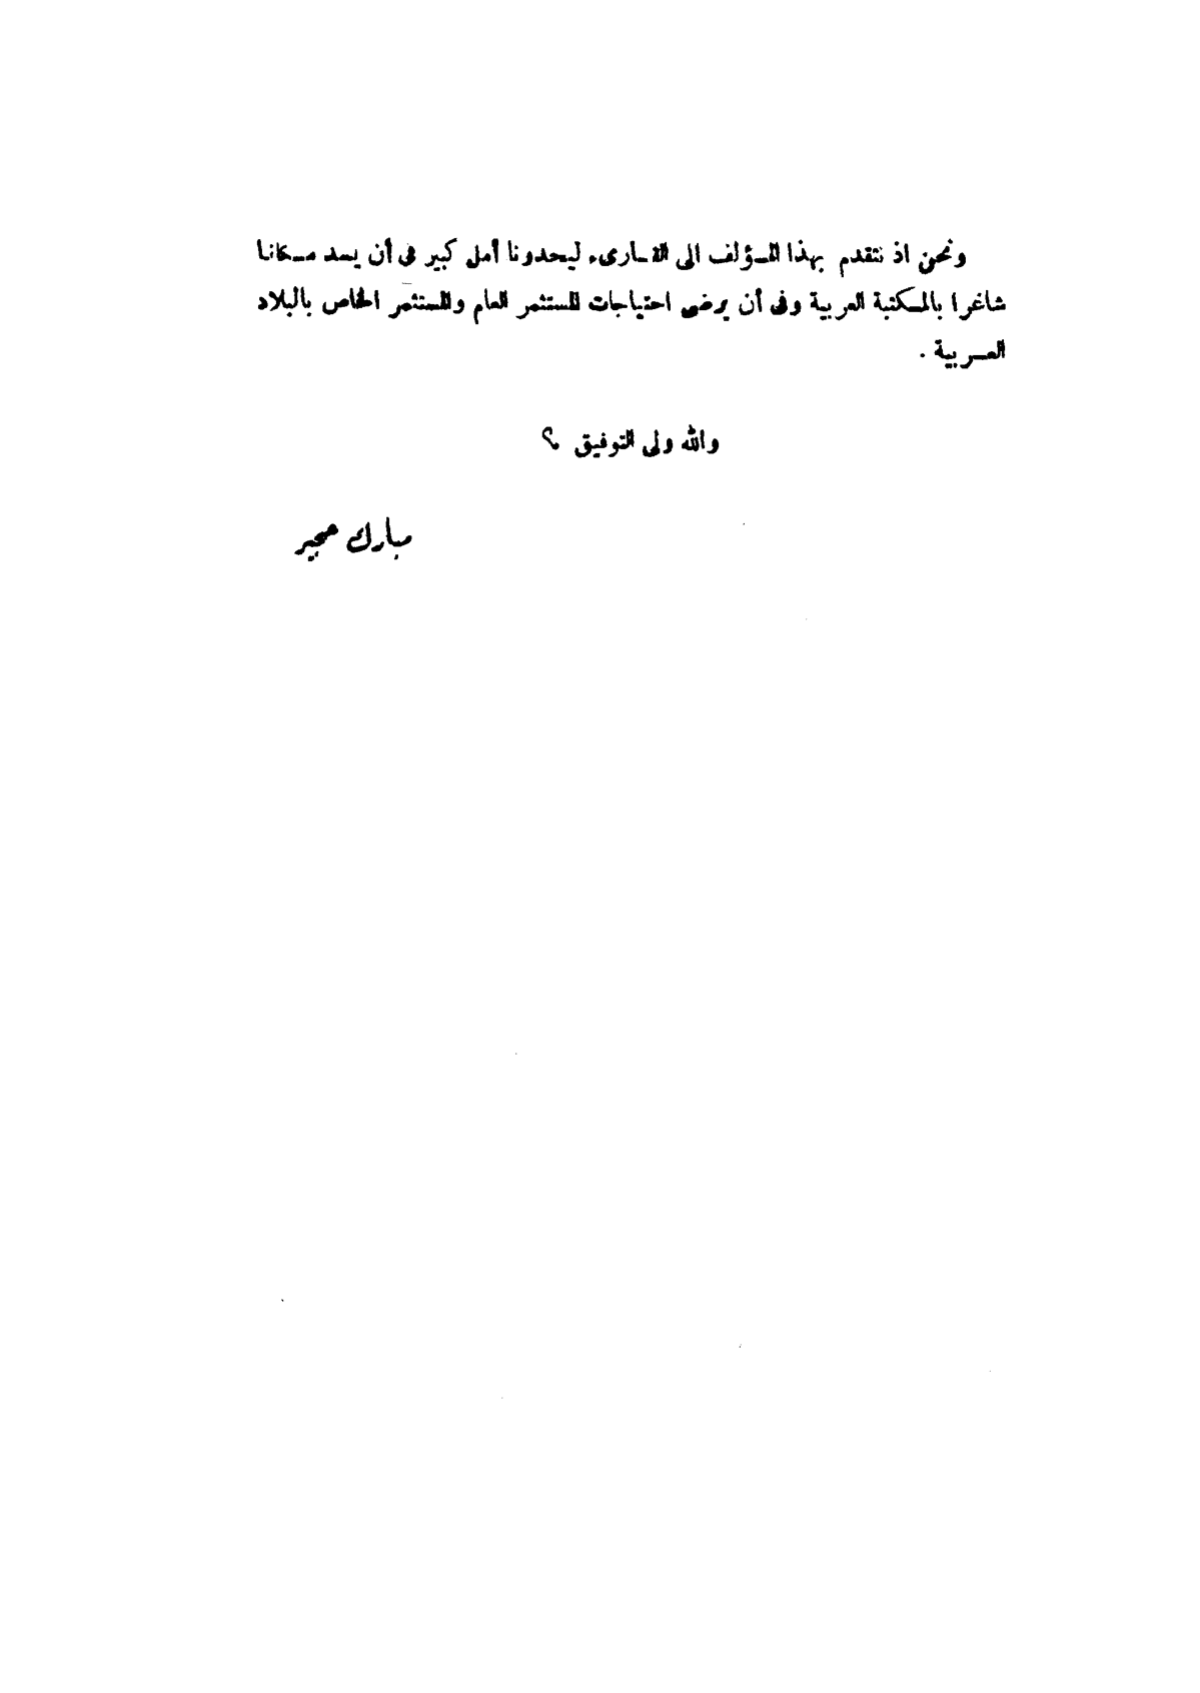 ونحن اذ نتقدم بهذا المؤلف الى القارىء ليحدونا أمل كبير فى أن يسد مكانا
شاغرا بالمكتبة العربية وفى أن يرضى احتياجات المستثمر العام والمستثمر الخاص بالبلاد
العربية .
والله ولى التوفيق ؟
مبارك حجير